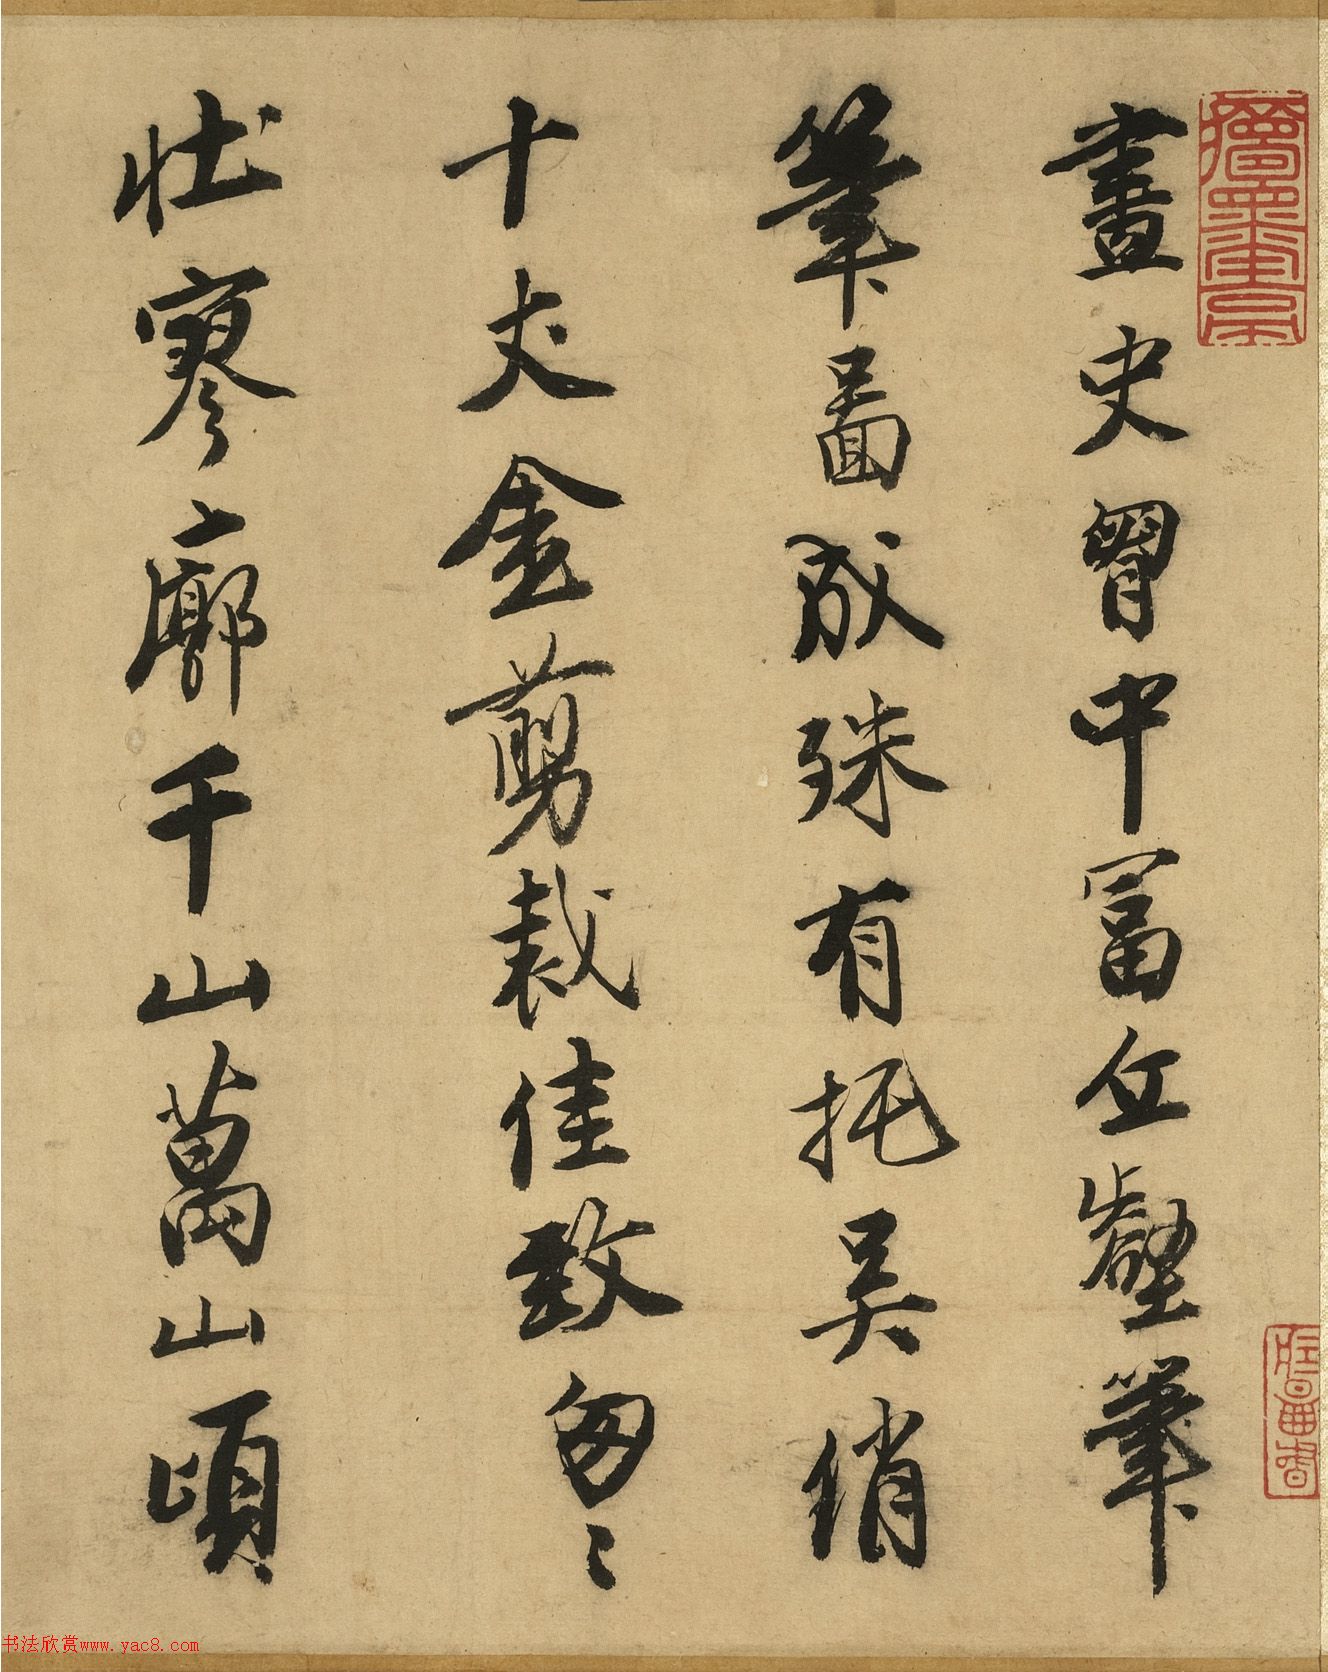 畫史胷中富丘壑筆
筆啚成殊有托吴綃
十丈金剪裁佳致匆〻
壮寥廓千山萬山頃
书法欣赏www.yac8.com